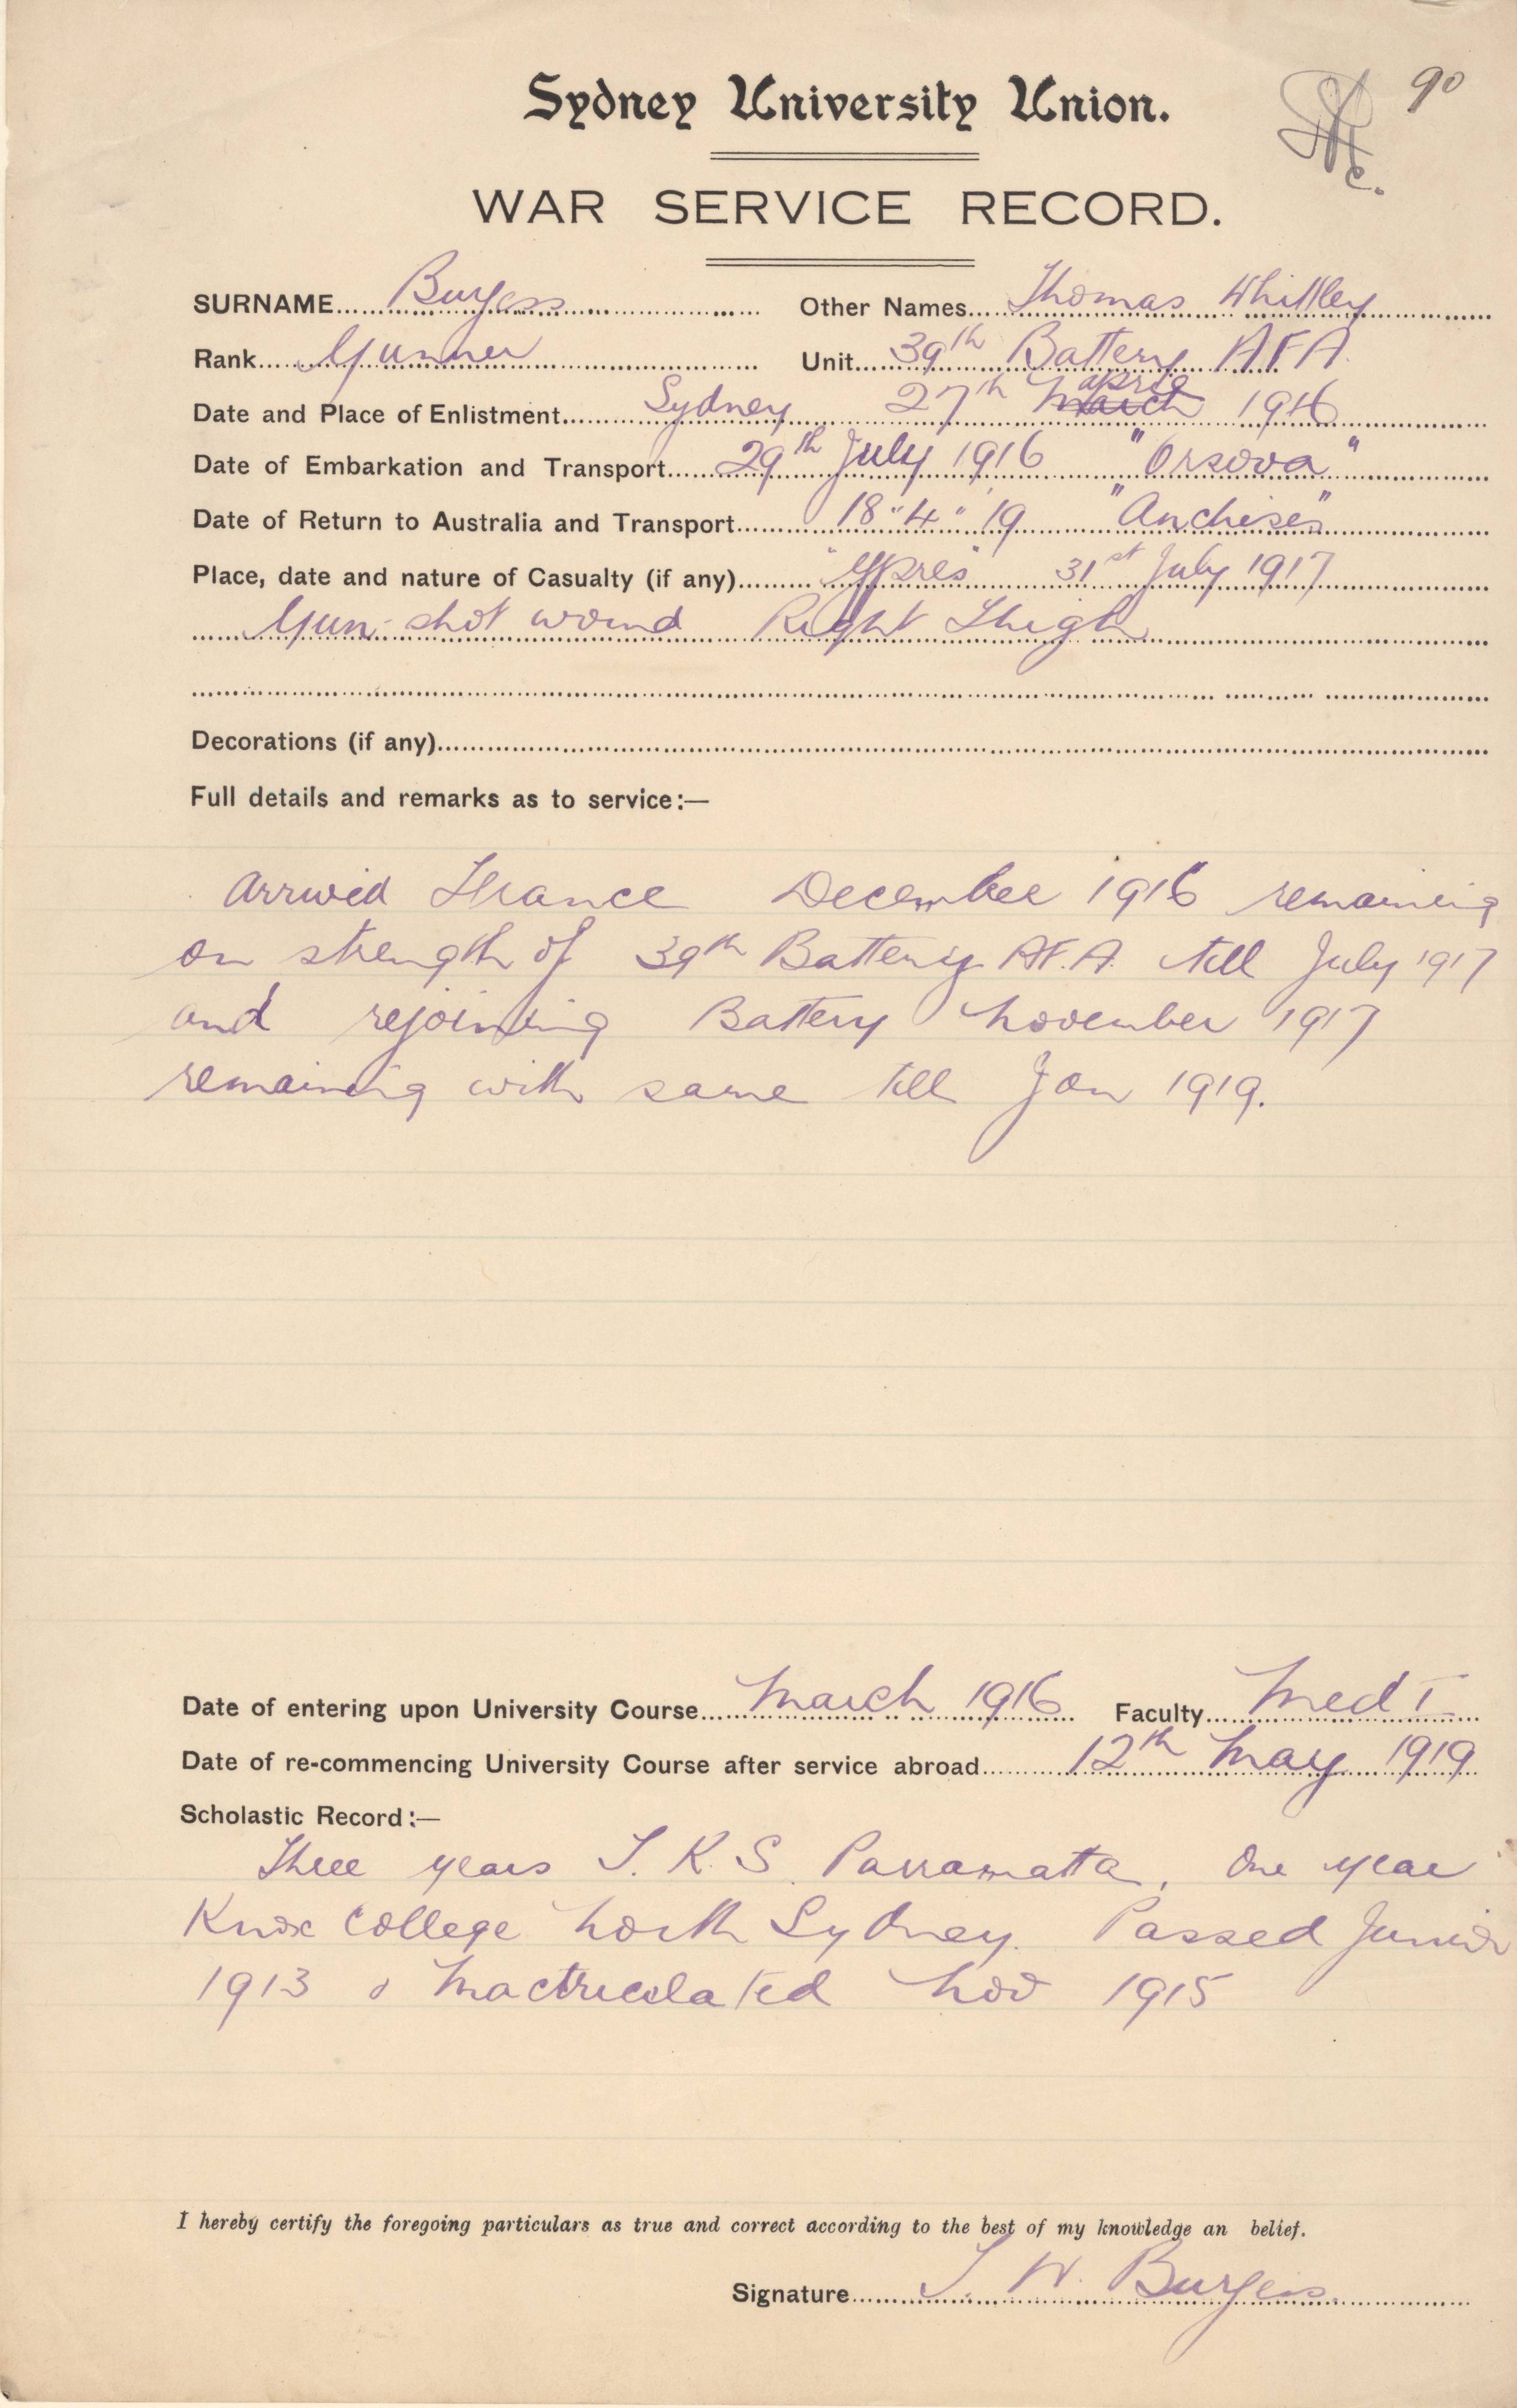 Sydney University Union.
90
WAR SERVICE RECORD.
SURNAME Burgess Other Names Thomas Whitley
Rank Gunner Unit 39th Battery A.F.A.
april
Date and Place of Enlistment Sydney 27th March 1916
Date of Embarkation and Transport 29th July 1916 "Orsova"
Date of Return to Australia and Transport 18"4"19 "Anchises"
Place, date and nature of Casualty (if any) "Ypres" 31st July 1917
Gun-shot wound Right Thigh
Decorations (if any)
Full details and remarks as to service:—
Arrived France December 1916 remaining
on strength of 39th Battery A.F.A. till July 1917
and rejoining Battery November 1917
remaining with same till Jan 1919.
Date of entering upon University Course March 1916 Faculty Med I
Date of re-commencing University Course after service abroad 12th May 1919
Scholastic Record:—
Three years T.K.S. Parramatta, One year
Knox College North Sydney. Passed Junior
1913 & Mactriculated Nov 1915
I hereby certify the foregoing particulars as true and correct according to the best of my knowledge an belief.
Signature T. W. Burgess.